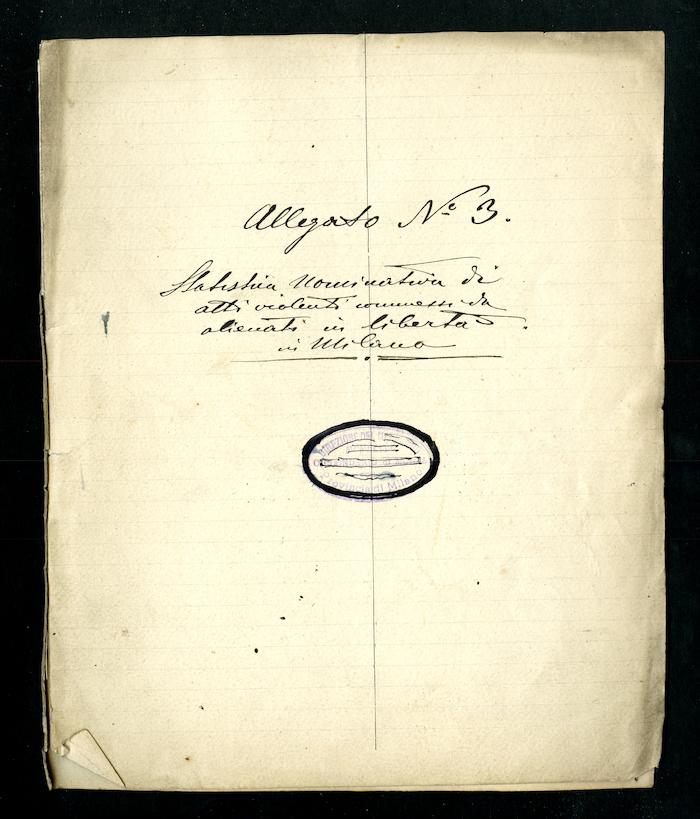 Allegato Nº 3.
Statistica Nominativa di
atti violenti commessi da
alienati in libertà.
in Milano
Direzione
Provincia di Milano